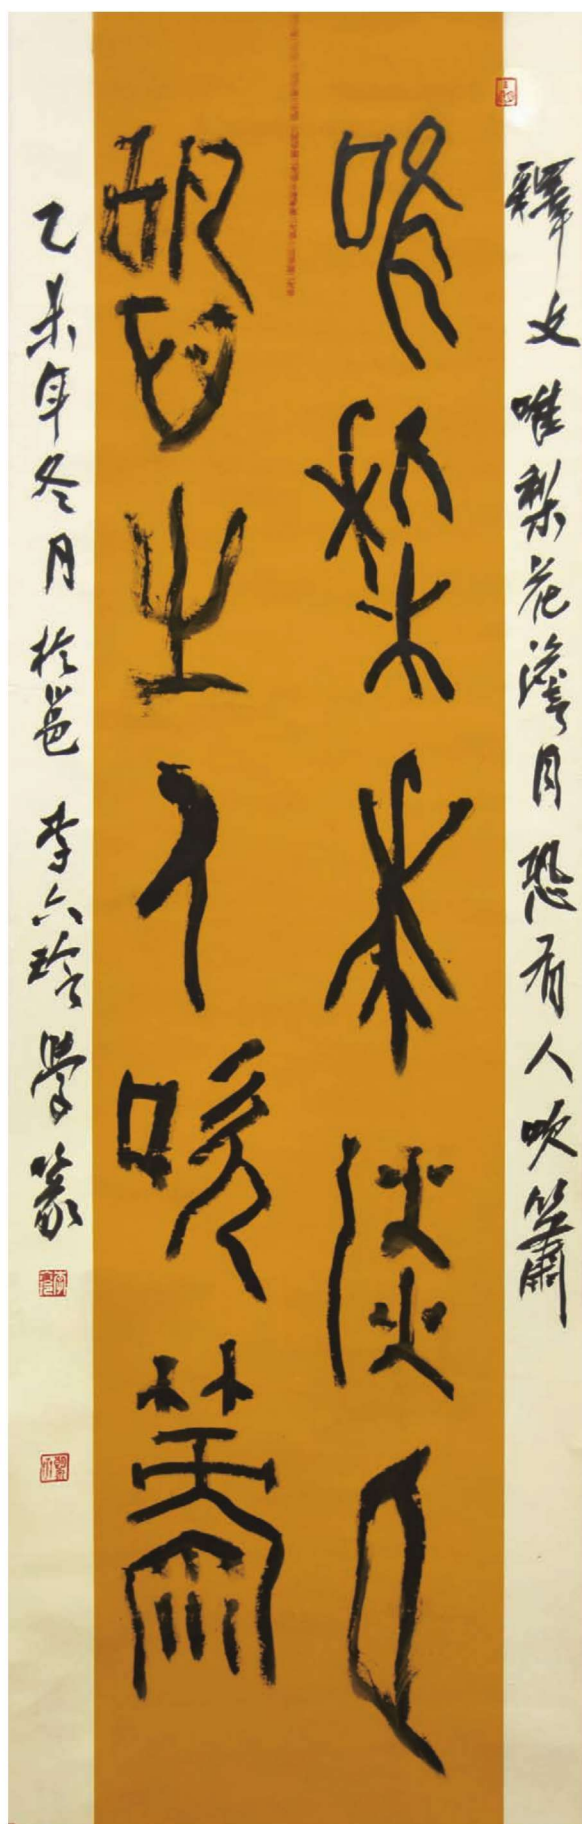 釋文 唯梨花澹月恐有人吹簫
唯梨花淡月
恐㞢人吹簫
乙未年冬月於邕 李六玲學篆